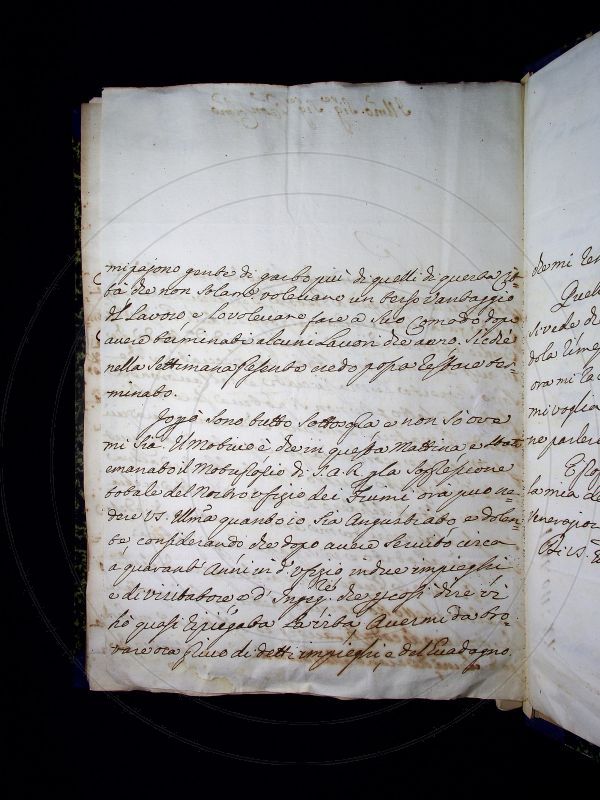 mi pajono gente di garbo più di quelli di questa Cit-
tà che non solam.e volevano un terso vantaggio
di Lavoro, e lo volevano fare a suo Comodo dopo
avere terminati alcuni Lavori che anno. Sicchè
nella Settimana credo possa restare ter-
minato.
Oggi sono tutto sottosopra e non sò ove
mi sia. Il motivo è che in questa Mattina è stato
emanato il Motuproprio di S. A. R. p la Soppressione
totale del Nostro Ufizio dei Fiumi ora può ve-
dere VS. Illma quanto io sia Angustiato e dolen-
te considerando che dopo avere servito circa
a quarant'Anni in d.o Ufizio in due impieghi
e di visitatore e d'Ingeg.re che p così dire vi
hò quasi Vita Avermi da tro-
vare ora privo di detti impieghi e del Guadagno
che mi
Quell
si vede d
ora mi
mi voglia
ne parler
la mia de